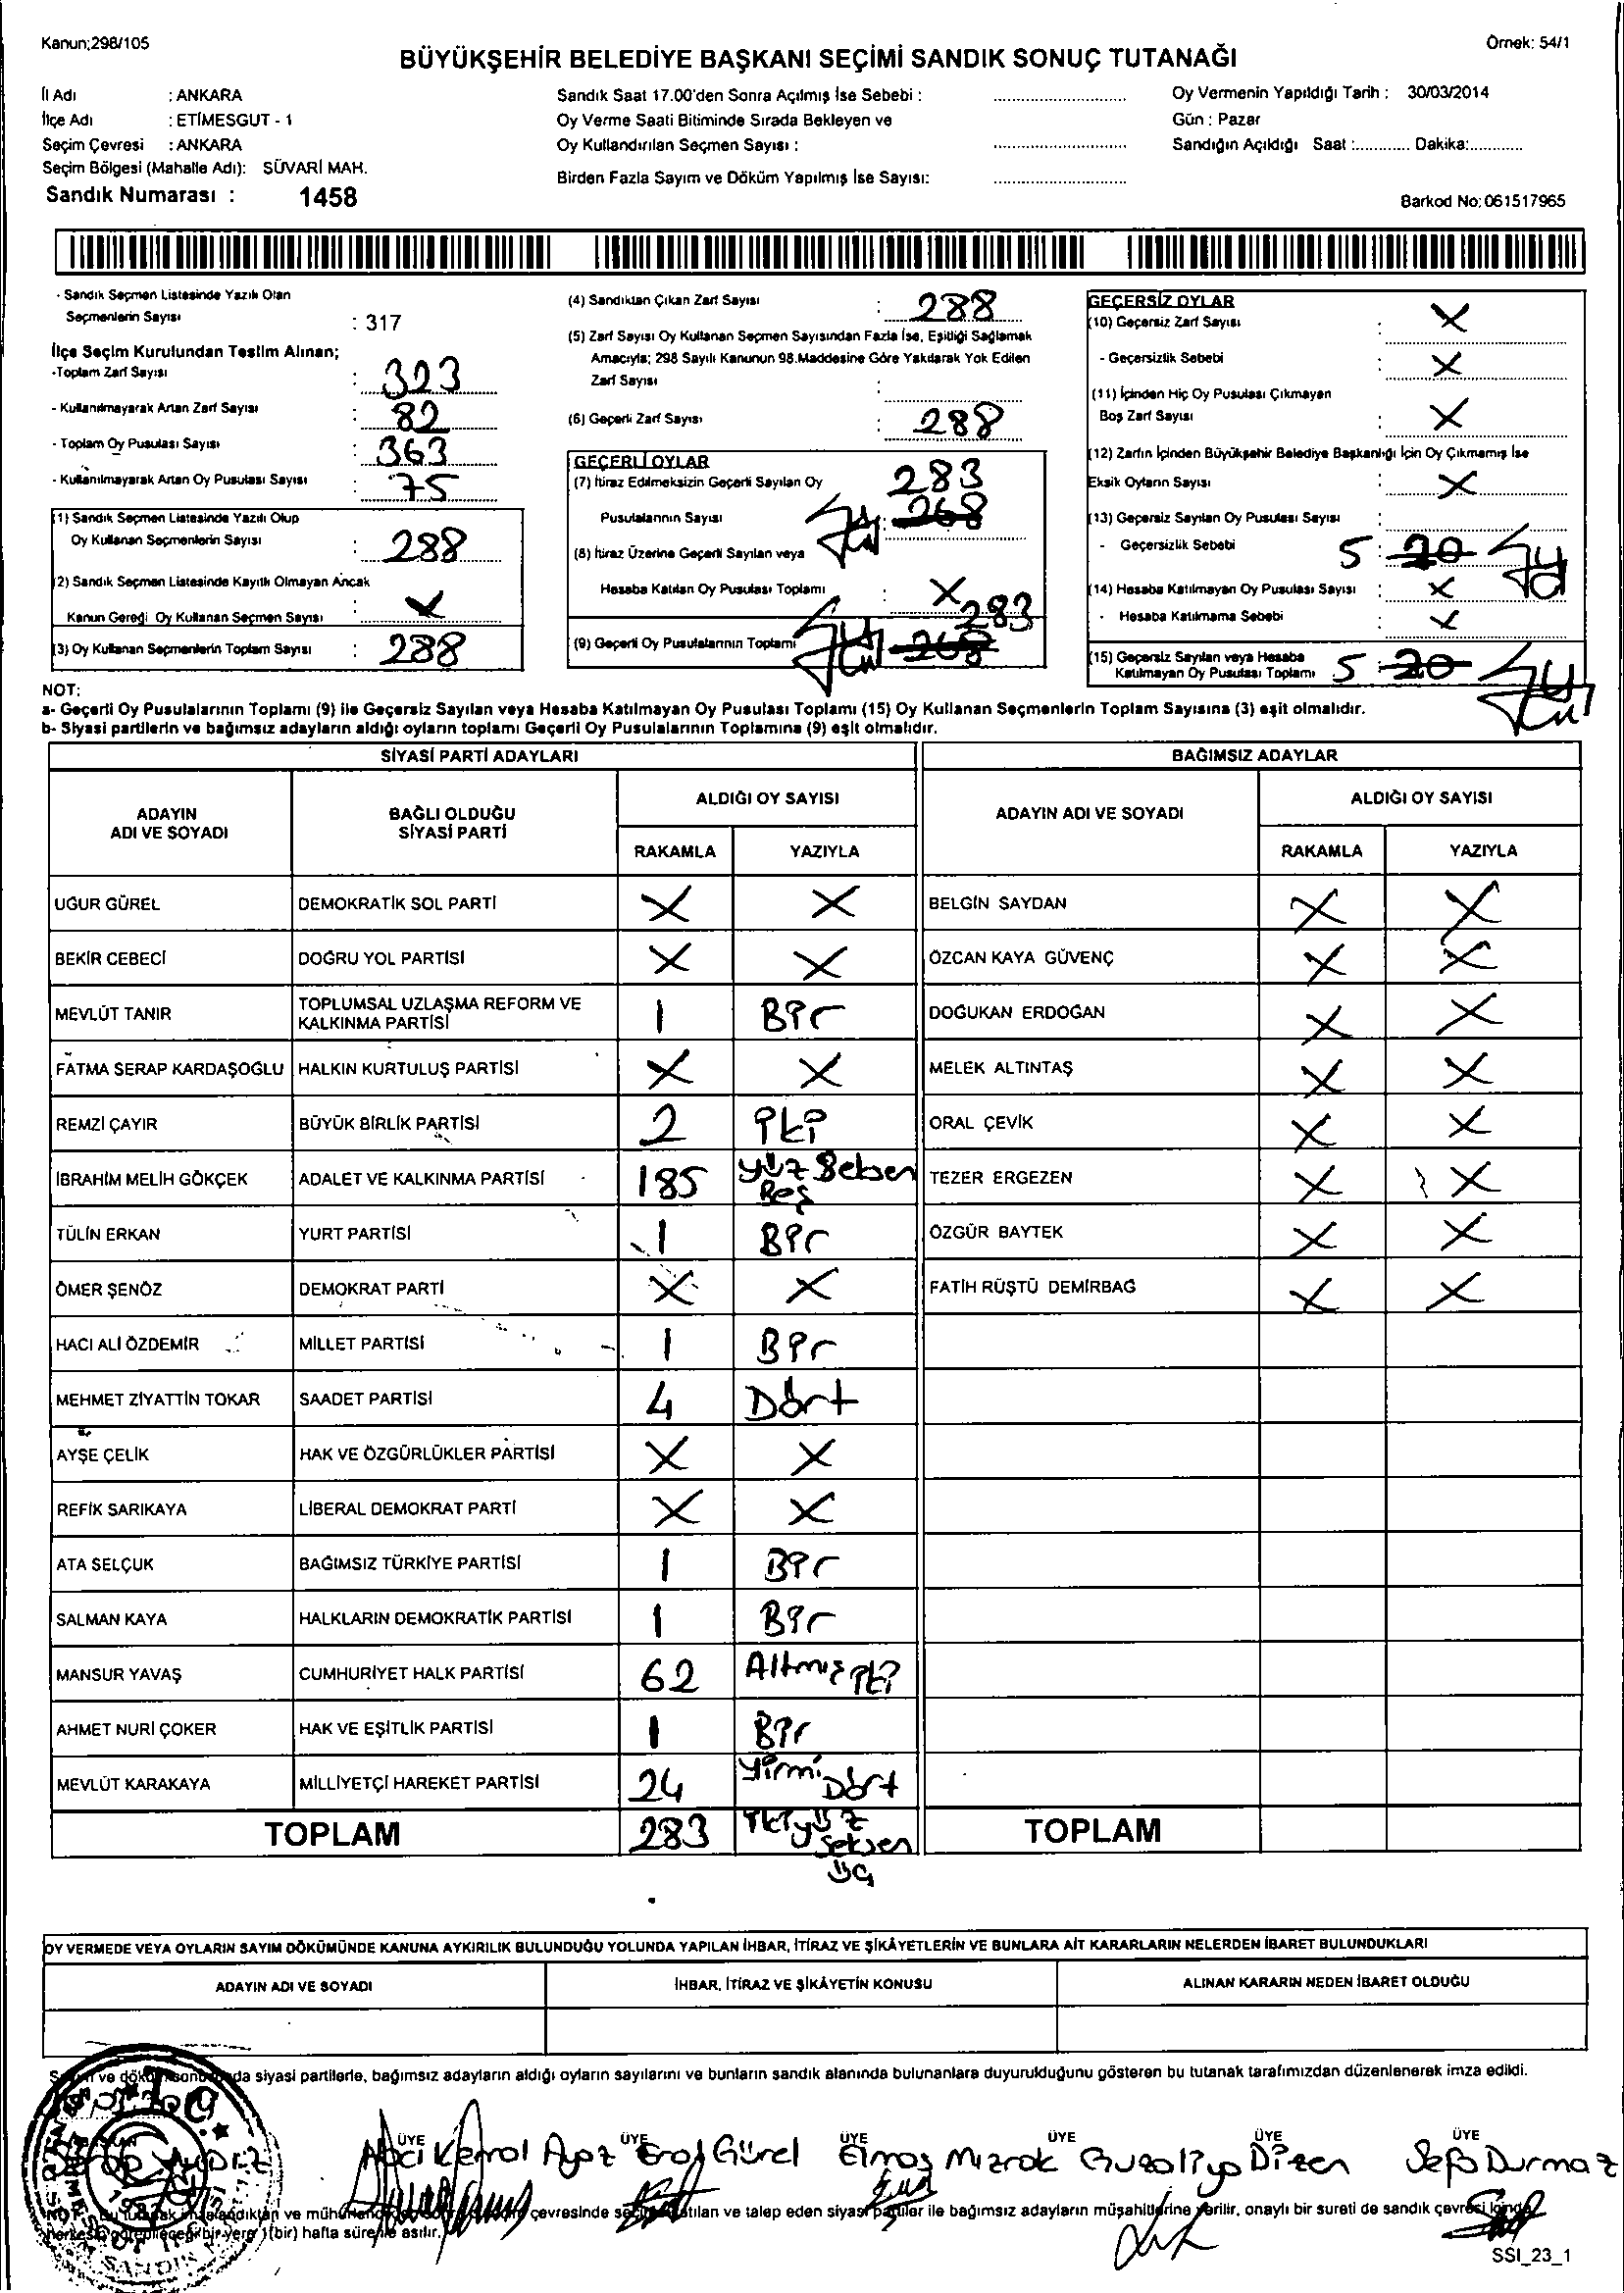 Kanun;298/105
Örnek: 54/1
BÜYÜKŞEHİR BELEDİYE BAŞKANI SEÇİMİ SANDIK SONUÇ TUTANAĞI
İl Adı : ANKARA
İlçe Adı : ETİMESGUT - 1
Seçim Çevresi : ANKARA
Seçim Bölgesi (Mahalle Adı): SÜVARİ MAH.
Sandık Numarası : 1458
Sandık Saat 17.00'den Sonra Açılmış İse Sebebi :
Oy Verme Saati Bitiminde Sırada Bekleyen ve
Oy Kullandırılan Seçmen Sayısı :
Birden Fazla Sayım ve Döküm Yapılmış İse Sayısı:
Oy Vermenin Yapıldığı Tarih : 30/03/2014
Gün : Pazar
Sandığın Açıldığı Saat :............ Dakika:............
Barkod No: 061517965
- Sandık Seçmen Listesinde Yazılı Olan
Seçmenlerin Sayısı : 317
İlçe Seçim Kurulundan Teslim Alınan;
-Toplam Zarf Sayısı : 323
- Kullanılmayarak Artan Zarf Sayısı : 82
- Toplam Oy Pusulası Sayısı : 363
- Kullanılmayarak Artan Oy Pusulası Sayısı : 75
(1) Sandık Seçmen Listesinde Yazılı Olup
Oy Kullanan Seçmenlerin Sayısı : 288
(2) Sandık Seçmen Listesinde Kayıtlı Olmayan Ancak
Kanun Gereği Oy Kullanan Seçmen Sayısı : X
(3) Oy Kullanan Seçmenlerin Toplam Sayısı : 288
(4) Sandıktan Çıkan Zarf Sayısı : 288
(5) Zarf Sayısı Oy Kullanan Seçmen Sayısından Fazla İse, Eşitliği Sağlamak
Amacıyla; 298 Sayılı Kanunun 98.Maddesine Göre Yakılarak Yok Edilen
Zarf Sayısı :
(6) Geçerli Zarf Sayısı : 288
GEÇERLİ OYLAR
(7) İtiraz Edilmeksizin Geçerli Sayılan Oy 283
Pusulalarının Sayısı : 268
(8) İtiraz Üzerine Geçerli Sayılan veya
Hesaba Katılan Oy Pusulası Toplamı : X
283
(9) Geçerli Oy Pusulalarının Toplamı 268
GEÇERSİZ OYLAR
(10) Geçersiz Zarf Sayısı : X
- Geçersizlik Sebebi : X
(11) İçinden Hiç Oy Pusulası Çıkmayan
Boş Zarf Sayısı : X
(12) Zarfın İçinden Büyükşehir Belediye Başkanlığı İçin Oy Çıkmamış İse
Eksik Oyların Sayısı : X
(13) Geçersiz Sayılan Oy Pusulası Sayısı :
- Geçersizlik Sebebi 5 : 20
(14) Hesaba Katılmayan Oy Pusulası Sayısı : X
- Hesaba Katılmama Sebebi : X
(15) Geçersiz Sayılan veya Hesaba
Katılmayan Oy Pusulası Toplamı 5 : 20
NOT:
a- Geçerli Oy Pusulalarının Toplamı (9) ile Geçersiz Sayılan veya Hesaba Katılmayan Oy Pusulası Toplamı (15) Oy Kullanan Seçmenlerin Toplam Sayısına (3) eşit olmalıdır.
b- Siyasi partilerin ve bağımsız adayların aldığı oyların toplamı Geçerli Oy Pusulalarının Toplamına (9) eşit olmalıdır.
SİYASİ PARTİ ADAYLARI
BAĞIMSIZ ADAYLAR
ADAYIN ADI VE SOYADI
BAĞLI OLDUĞU SİYASİ PARTİ
ALDIĞI OY SAYISI
RAKAMLA YAZIYLA
ADAYIN ADI VE SOYADI
ALDIĞI OY SAYISI
RAKAMLA YAZIYLA
UĞUR GÜREL DEMOKRATİK SOL PARTİ X X BELGİN SAYDAN X X
BEKİR CEBECİ DOĞRU YOL PARTİSİ X X ÖZCAN KAYA GÜVENÇ X X
MEVLÜT TANIR TOPLUMSAL UZLAŞMA REFORM VE KALKINMA PARTİSİ 1 Bir DOĞUKAN ERDOĞAN X X
FATMA SERAP KARDAŞOĞLU HALKIN KURTULUŞ PARTİSİ X X MELEK ALTINTAŞ X X
REMZİ ÇAYIR BÜYÜK BİRLİK PARTİSİ 2 iki ORAL ÇEVİK X X
İBRAHİM MELİH GÖKÇEK ADALET VE KALKINMA PARTİSİ 185 Yüz Seksen Beş TEZER ERGEZEN X X
TÜLİN ERKAN YURT PARTİSİ 1 Bir ÖZGÜR BAYTEK X X
ÖMER ŞENÖZ DEMOKRAT PARTİ X X FATİH RÜŞTÜ DEMİRBAĞ X X
HACI ALİ ÖZDEMİR MİLLET PARTİSİ 1 Bir
MEHMET ZİYATTİN TOKAR SAADET PARTİSİ 4 Dört
AYŞE ÇELİK HAK VE ÖZGÜRLÜKLER PARTİSİ X X
REFİK SARIKAYA LİBERAL DEMOKRAT PARTİ X X
ATA SELÇUK BAĞIMSIZ TÜRKİYE PARTİSİ 1 Bir
SALMAN KAYA HALKLARIN DEMOKRATİK PARTİSİ 1 Bir
MANSUR YAVAŞ CUMHURİYET HALK PARTİSİ 62 Altmış iki
AHMET NURİ ÇOKER HAK VE EŞİTLİK PARTİSİ 1 Bir
MEVLÜT KARAKAYA MİLLİYETÇİ HAREKET PARTİSİ 24 Yirmi Dört
TOPLAM 283 ikiyüz seksen üç TOPLAM
OY VERMEDE VEYA OYLARIN SAYIM DÖKÜMÜNDE KANUNA AYKIRILIK BULUNDUĞU YOLUNDA YAPILAN İHBAR, İTİRAZ VE ŞİKÂYETLERİN VE BUNLARA AİT KARARLARIN NELERDEN İBARET BULUNDUKLARI
ADAYIN ADI VE SOYADI İHBAR, İTİRAZ VE ŞİKÂYETİN KONUSU ALINAN KARARIN NEDEN İBARET OLDUĞU
siyasi partilerle, bağımsız adayların aldığı oyların sayılarını ve bunların sandık alanında bulunanlara duyurulduğunu gösteren bu tutanak tarafımızdan düzenlenerek imza edildi.
ÜYE ÜYE ÜYE ÜYE ÜYE ÜYE
Erol Gürel Elmas Mızrak Dizen Sefa Durmaz
çevresinde ve talep eden siyasi partiler ile bağımsız adayların müşahitlerine verilir, onaylı bir sureti de sandık çevresi içinde
(bir) hafta süreyle asılır.
SSI_23_1